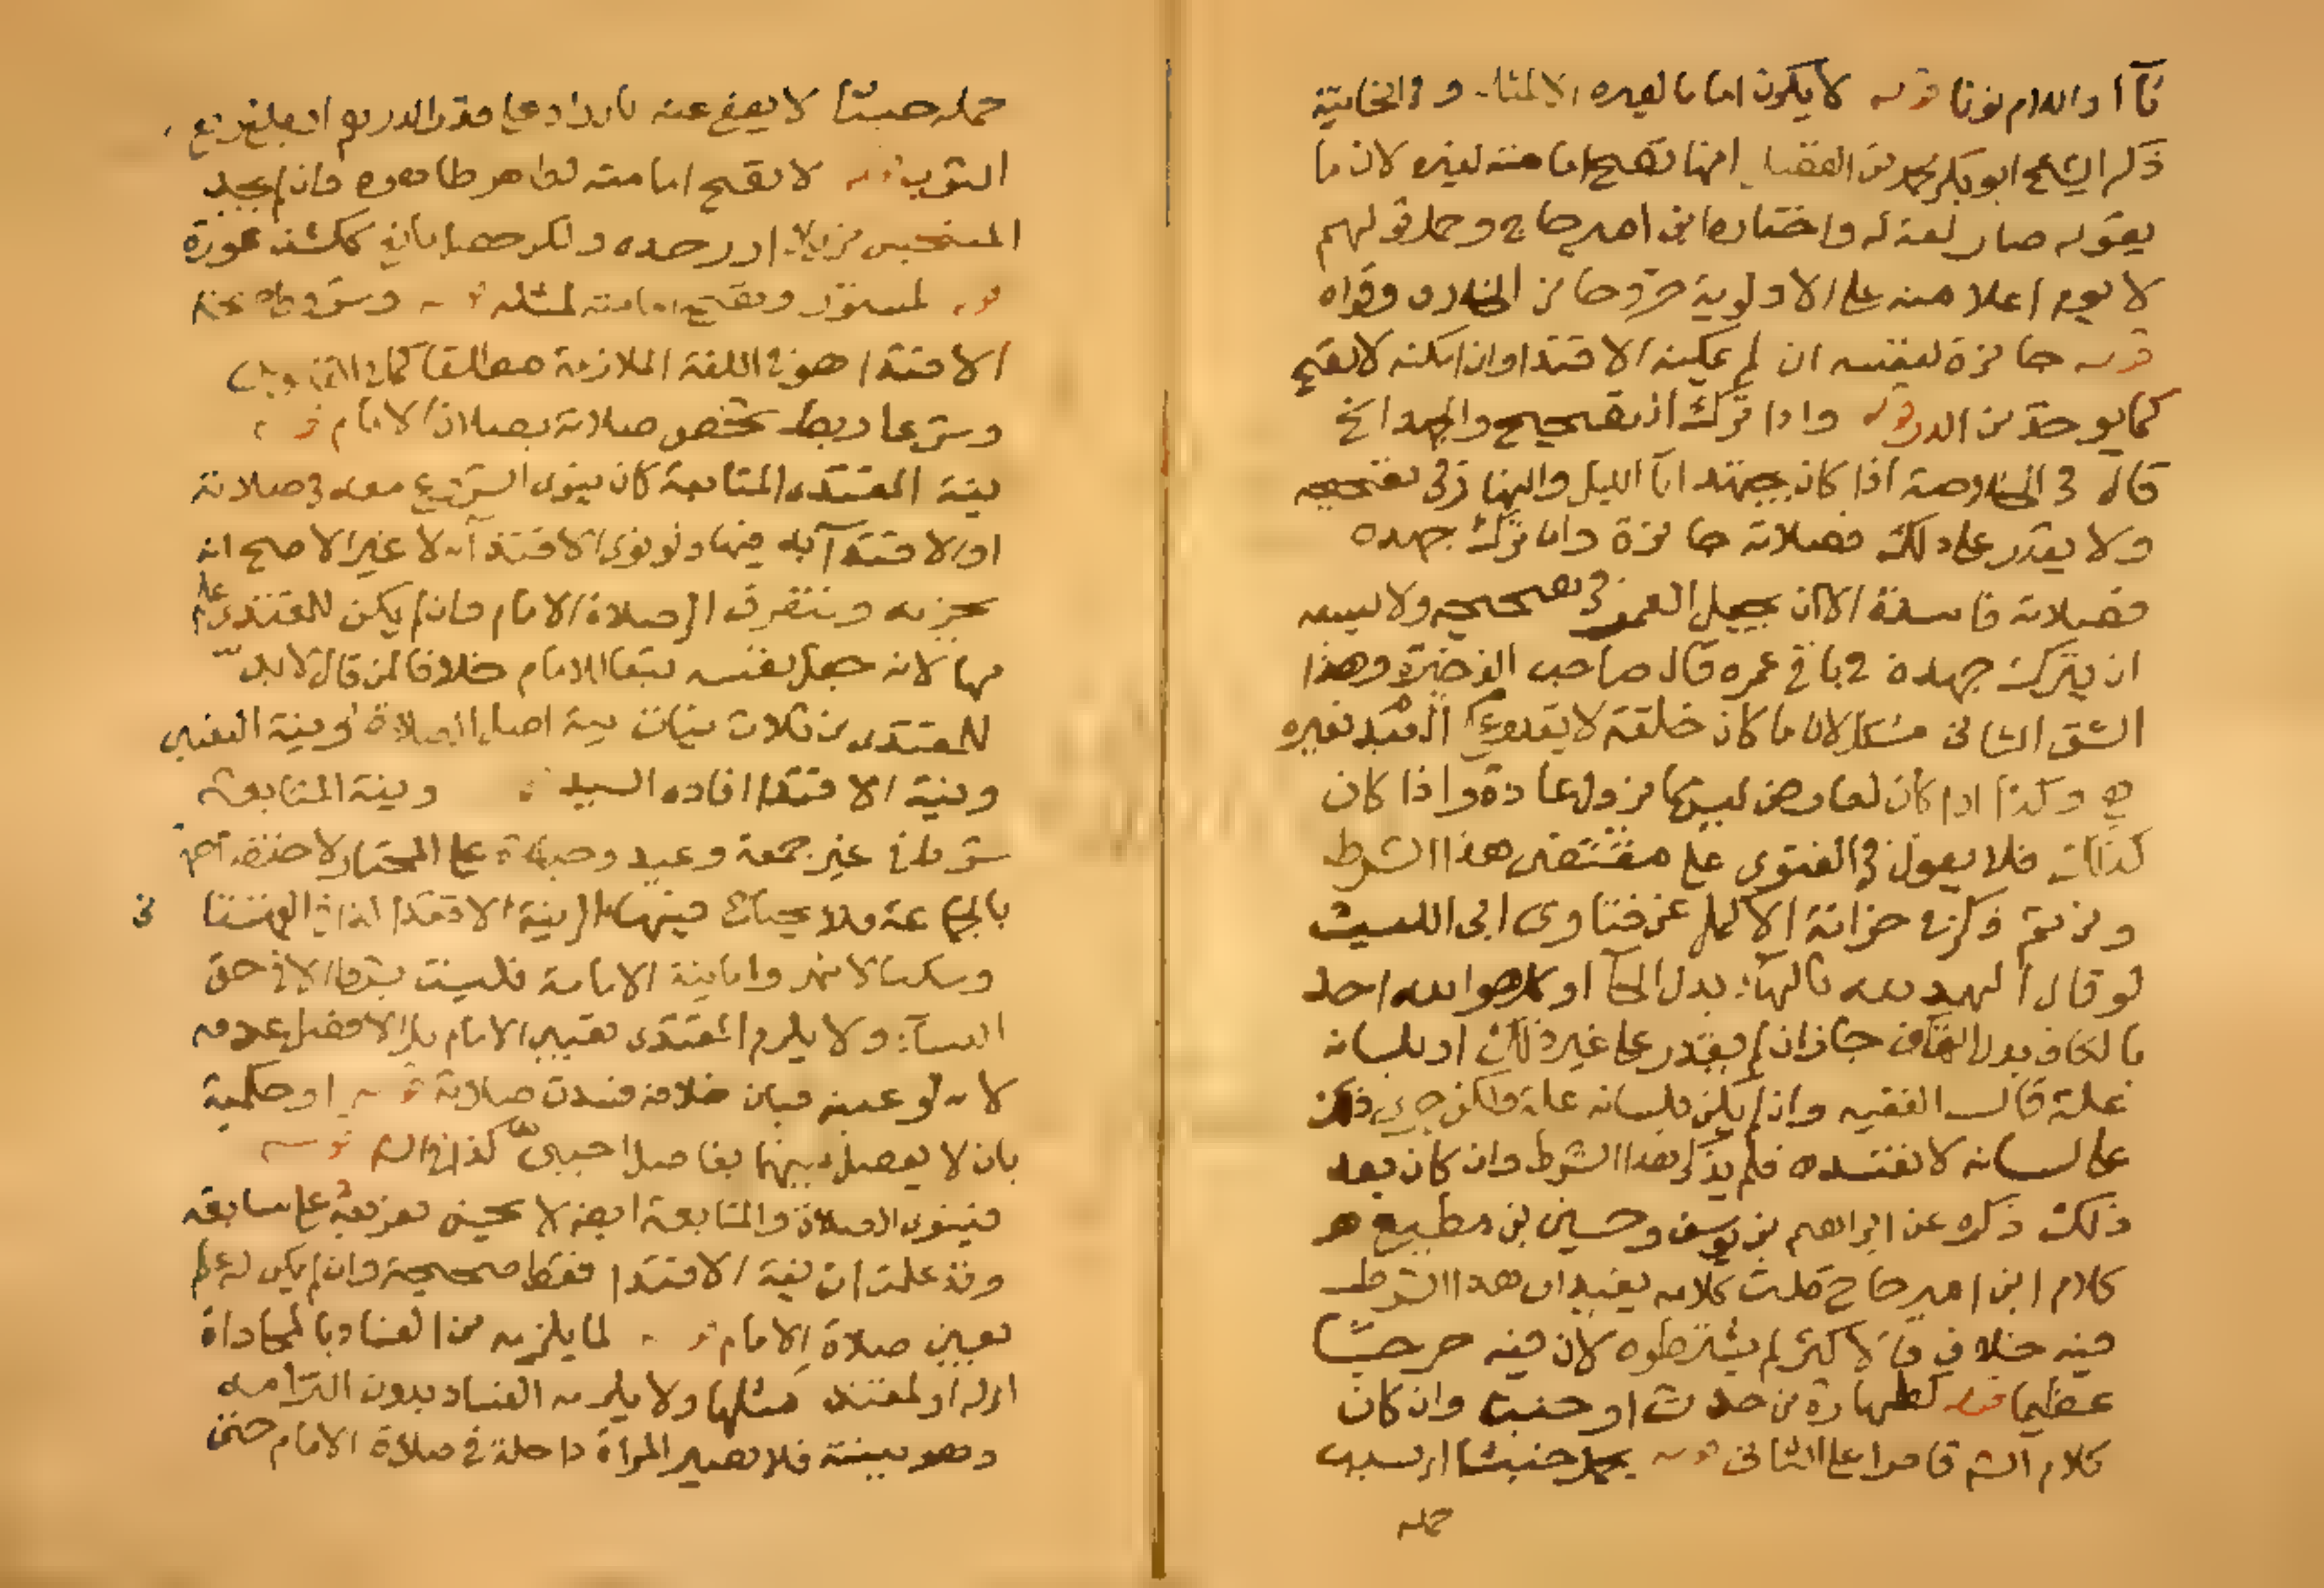 تآ او اللام نونا قوله لا يكون اماما لغيره الا لمثله وفي الخانية
ذكر الشيخ ابو بكر محمد بن الفضل انها تصح امامته لغيره لان ما
يقوله صار لغة له واختاره ابن امير حاج وحمل قولهم
لا يوم اعلا منه على الاولوية خروجا من الخلاف وقواه
قوله جائزة لنفسه ان لم يمكنه الاقتدا وان امكنه لا تصح
كما يوخذ من الدر قوله واذا ترك التصحيح والجهد الخ
قال في الخلاصة اذا كان يجتهد انآ الليل والنهار في تصحيحه
ولا يقدر على ذلك فصلاته جائزة وان ترك جهده
فصلاته فاسدة الا ان يجعل العمر في تصحيحه ولا يسعه
ان يترك جهده في باقي عمره قال صاحب الذخيرة وهذا
الشق الثاني مشكل لان ما كان خلقة لا يقدر العبد تغيره
وكذا اذا كان لعارض ليس مما يزول عادة واذا كان
كذلك فلا يعول في الفتوى على مقتضى هذا الشرط
ومن ثم ذكر في خزانة الاكمل عن فتاوى ابي الليث
لو قال الهمد لله بالهآ بدل الحآ او كل هو الله احد
بالكاف بدل القاف جاز ان لم يقدر على غير ذلك او بلسانه
علة قال الفقيه وان لم يكن بلسانه علة ولكن جرى ذلك
على لسانه لا تفسد فلم يذكر هذا الشرط وان كان بعد
ذلك ذكره عن ابراهيم بن يوسف وحسين بن مطيع هو
كلام ابن امير حاج قلت كلامه يفيد ان هذا الشرط
فيه خلاف فالاكثر لم يشترطوه لان فيه حرجا
عظيما قوله لطهارة من حدث او خبث وان كان
كلام الشر قاصرا على الثاني قوله بحمل خبثا اي بسبب
حمله
حمله خبثا لا يعفى عنه بان زاد على قدر الدرهم او بلغ ربع
الثوب قوله لا تصح امامته لطاهر فان لم يجد
المتنجس مزيلا او وجده ولكن حصل مانع ككشف عورة
قوله لمستور وتصح امامته لمثله قوله وشروط صحة
الاقتدا هو في اللغة الملازمة مطلقا كما في القهستاني
وشرعا ربط شخص صلاته بصلاة الامام قوله
نية المقتدى المتابعة كان ينوى الشروع معه في صلاته
او الاقتدآ به فيها ولو نوى الاقتدآ به لا غير الاصح انه
يجزيه وينصرف الى صلاة الامام وان لم يكن للمقتدى علم
بها لانه جعل نفسه تبعا للامام خلافا لمن قال لا بد
للمقتدى من ثلاث نيات نية اصل الصلاة ونية التعيين
ونية الاقتدا افاده السيد قوله ونية المتابعة
شرط في غير جمعة وعيد وجنازة على المختار لاختصاصها
بالجماعة فلا يحتاج فيها الى نية الاقتدا
وسكب الانهر واما نية الامامة فليست بشرط الا في حق
النسآ ولا يلزم المقتدى تعيين الامام بل الافضل عدمه
لانه لو عينه فبان خلافه فسدت صلاته قوله او حكمية
بان لا يفصل بينهما بفاصل اجنبى كذا في الشر قوله
فينوى الصلاة والمتابعة ايضا لا يحسن تفريعه على سابقه
وقد علمت ان نية الاقتدا فقط صحيحة وان لم يكن له علم
بعين صلاة الامام قوله لما يلزمه من الفساد بالمحاذاة
اي له او لمقتد مثلها ولا يلزمه الفساد بدون التزامه
وهو بنيته فلا تصير المراة داخلة في صلاة الامام حتى